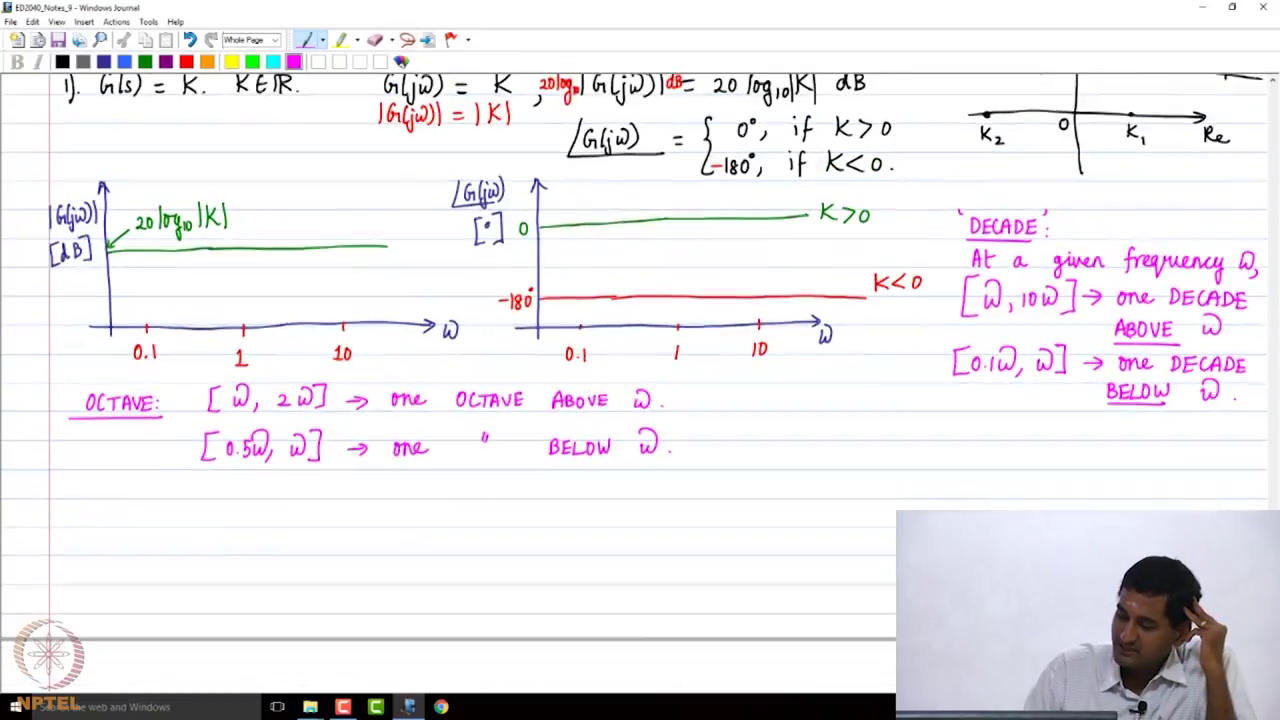 ED2040_Notes_9 - Windows Journal
File Edit View Insert Actions Tools Help
Whole Page
1). G(s) = K. K∈ℝ. G(jω) = K , 20 log₁₀|G(jω)|dB = 20 log₁₀|K| dB
|G(jω)| = |K|
∠G(jω) = { 0°, if K>0
-180°, if K<0.
K₂ 0 K₁ Re
|G(jω)|
[dB]
20 log₁₀|K|
0.1 1 10 ω
∠G(jω)
[°]
0 K>0
-180° K<0
0.1 1 10 ω
'DECADE':
At a given frequency ω,
[ω, 10ω] → one DECADE
ABOVE ω
[0.1ω, ω] → one DECADE
BELOW ω.
OCTAVE: [ω, 2ω] → one OCTAVE ABOVE ω.
[0.5ω, ω] → one " BELOW ω.
NPTEL
Search the web and Windows